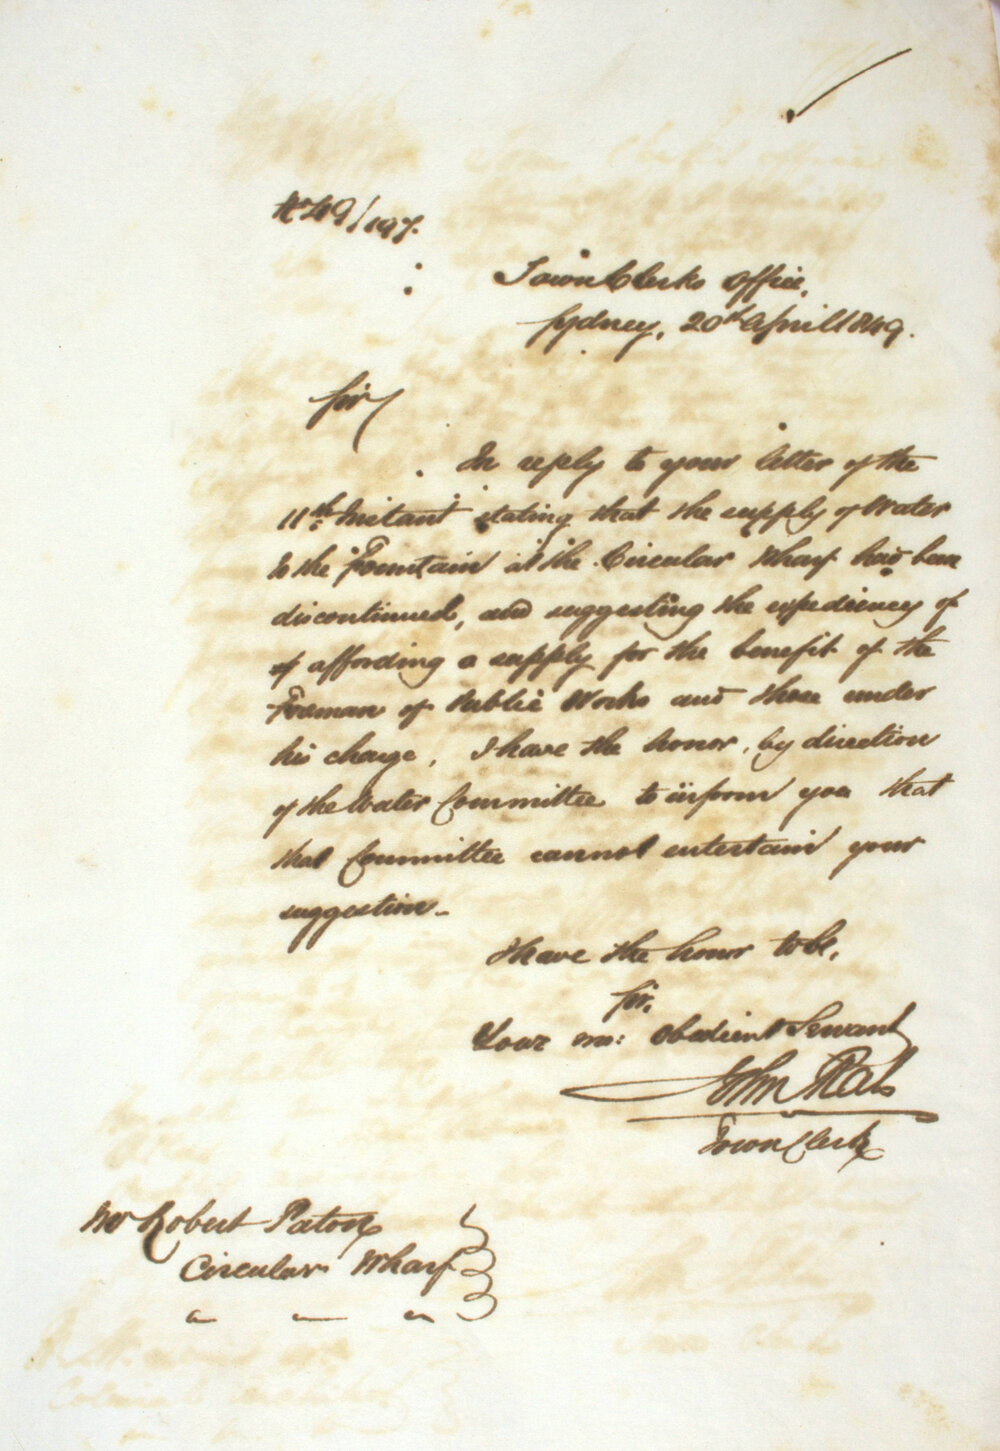 No 49/197.
Town Clerks Office,
Sydney, 20th April 1849.
Sir
In reply to your letter of the
11th Instant stating that the supply of Water
to the Fountain at the Circular Wharf had been
discontinued, and suggesting the expediency of
of affording a supply for the benefit of the
Foreman of Public Works and those under
his charge, I have the honor, by direction
of the Water Committee to inform you that
that Committee cannot entertain your
suggestion.
I have the honor to be,
Sir,
Your mo: Obedient Servant
John
Town Clerk
Mr Robert Paton
Circular Wharf